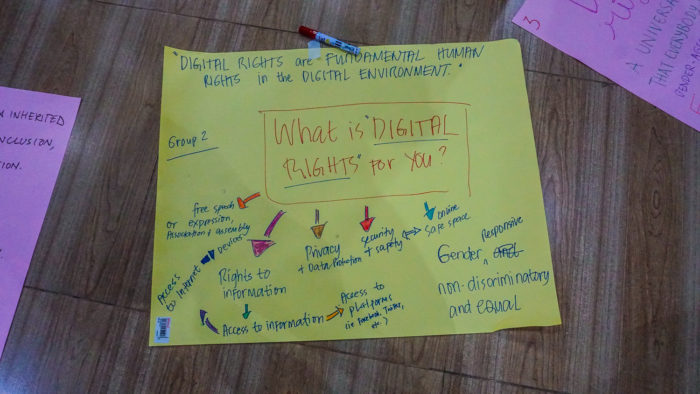 "DIGITAL RIGHTS are FUNDAMENTAL HUMAN
RIGHTS in the DIGITAL ENVIRONMENT."
Group 2
What is "DIGITAL
RIGHTS" FOR YOU?
free speech
or expression,
Association & assembly
Devices
Access
to Internet
Rights to
information
Access to information
Access to
platforms
(ie Facebook, Twitter,
etc.)
Privacy
+ Data Protection
security
+ safety
online
safe space
Responsive
Gender
non-discriminatory
and equal
INHERITED
NCLUSION,
TION.
3
A UNIVERSA
THAT EVERYBODY